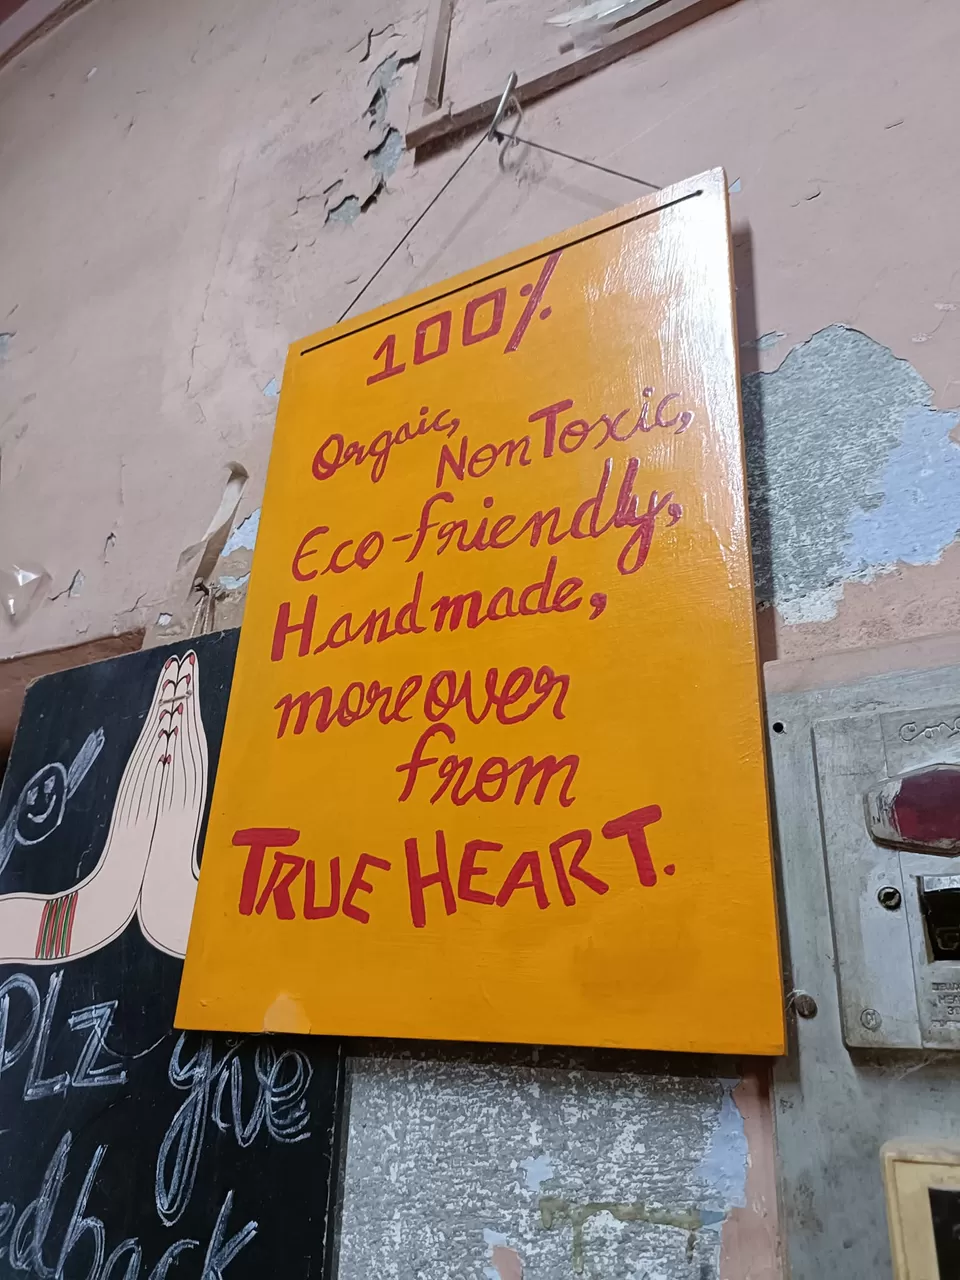 100%
Orgaic,
Non Toxic,
Eco-friendly,
Handmade,
moreover
from
TRUE HEART.
PLZ
give
edback